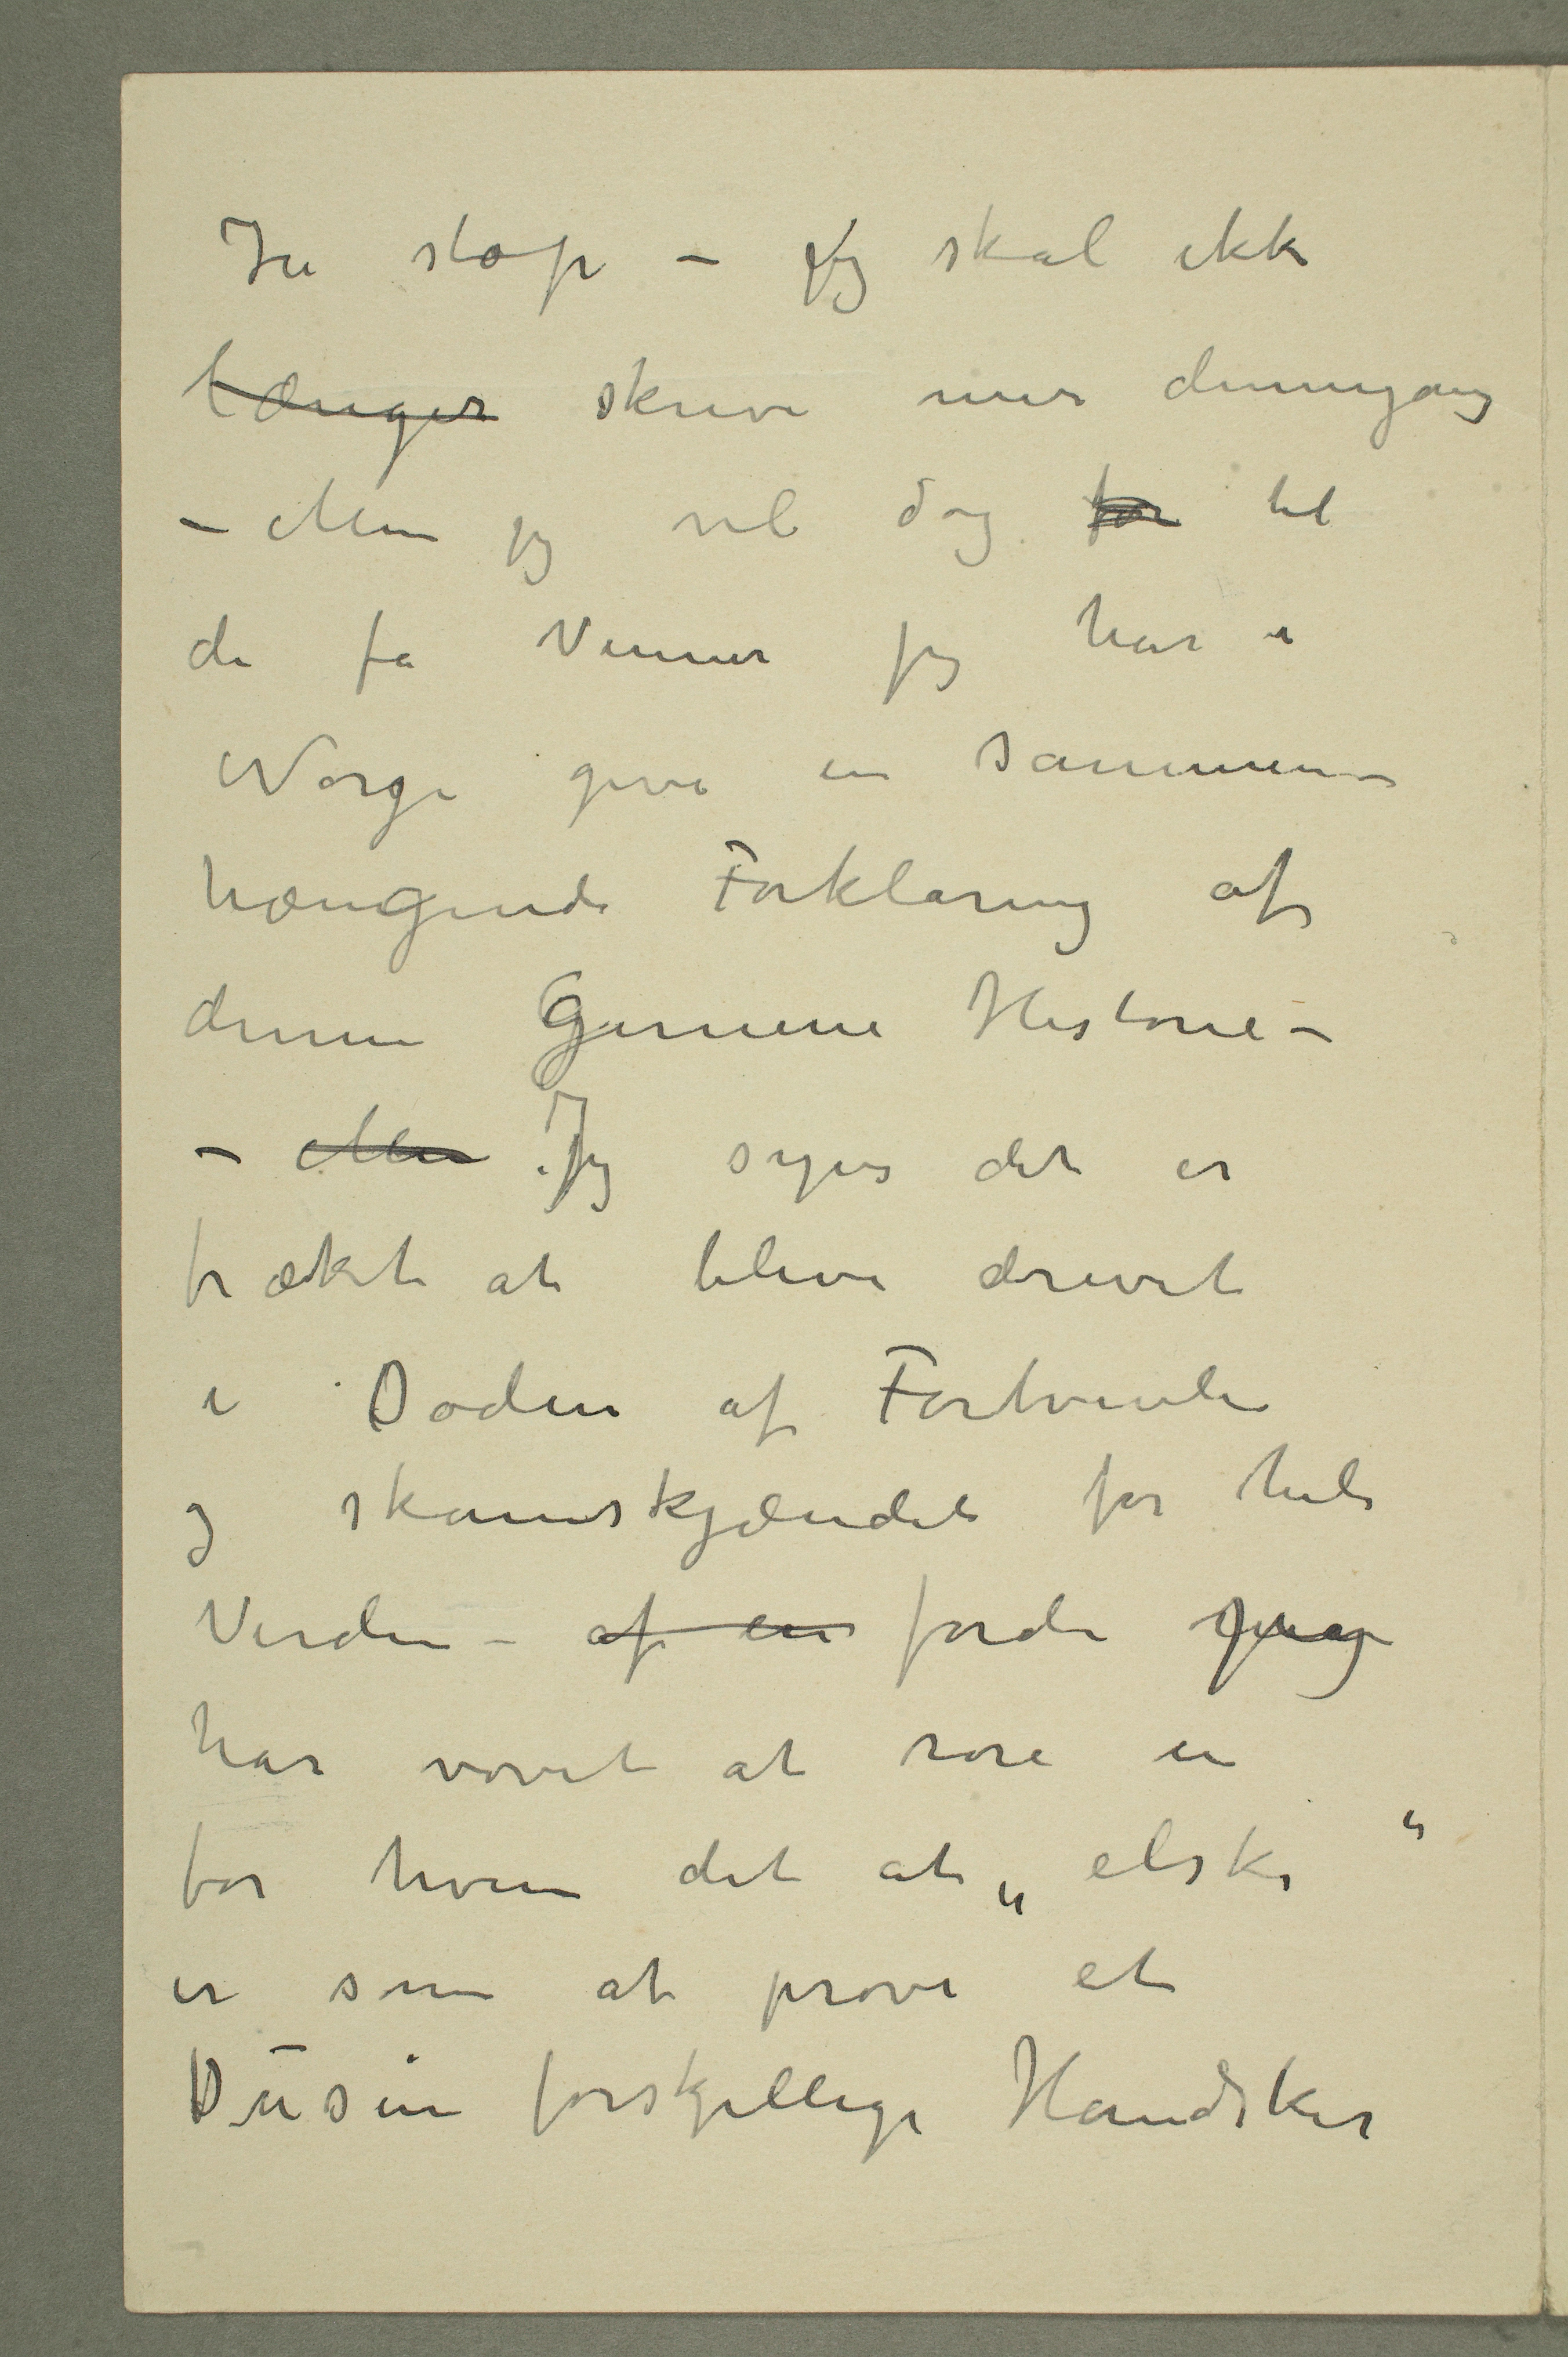 Ja stop – jeg skal ikke
længer skrive mer dennegang
– Men jeg vil dog for til
de få Venner jeg har i
Norge give en sammen-
hængende Forklaring af
denne Gemene Historie –
– Men Jeg synes det er
frækt at blive drevet
i Døden af Fortvivle
og skamskjændet for hele
Verden – af en fordi jeg
har vovet at røre en
for hvem det at „elske“
er som at prøve et
Dusin forskjellige Handsker